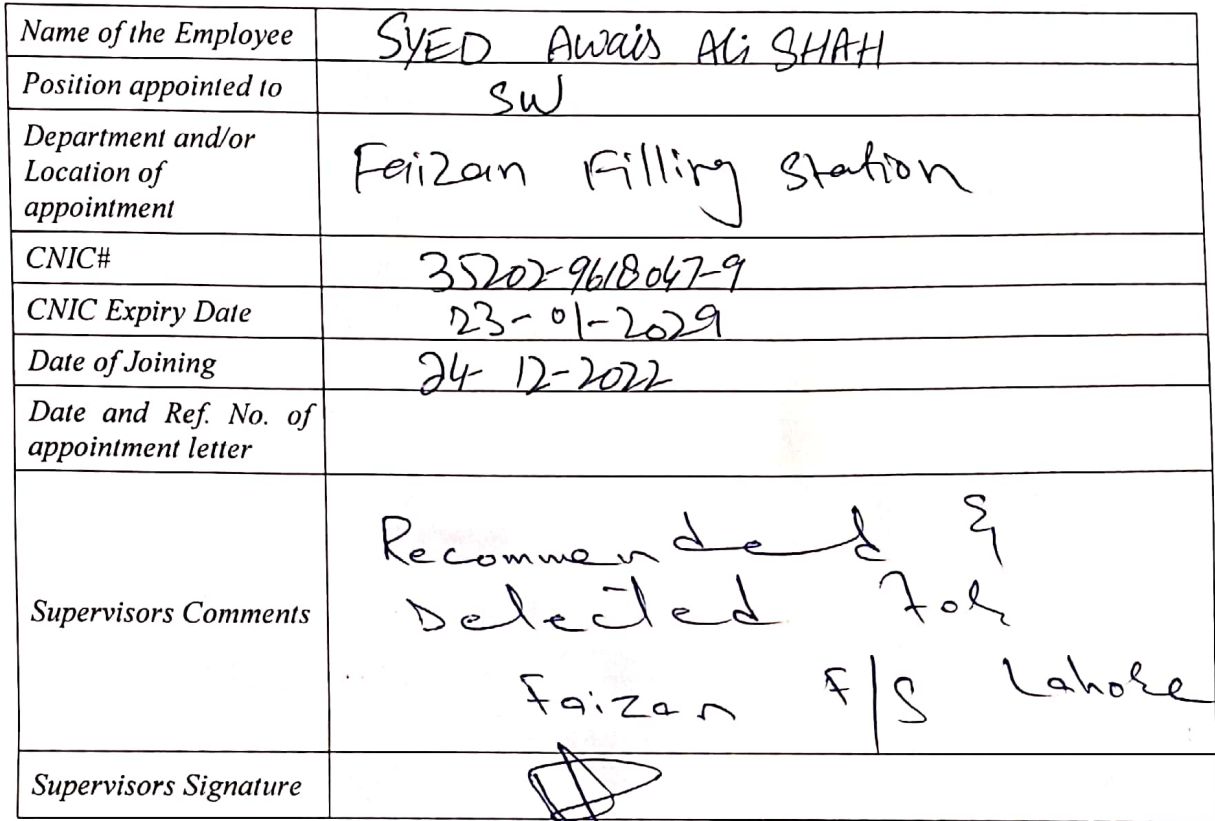 Name of the Employee SYED Awais Ali SHAH
Position appointed to SW
Department and/or
Location of
appointment
Faizan Filling Station
CNIC# 35202-9618047-9
CNIC Expiry Date 23-01-2029
Date of Joining 24-12-2022
Date and Ref. No. of
appointment letter
Supervisors Comments
Recommended &
Selected For
Faizan F/S Lahore
Supervisors Signature